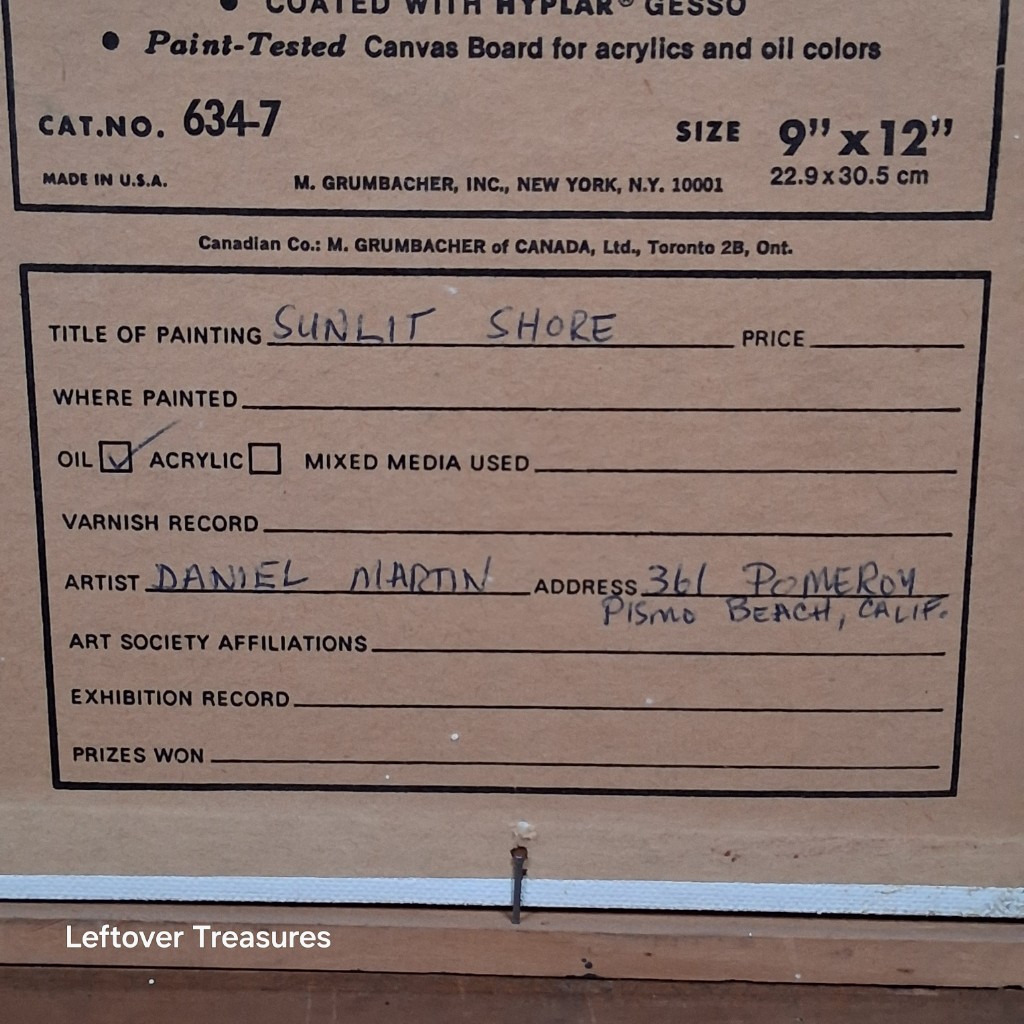 • COATED WITH HYPLAR® GESSO
• Paint-Tested Canvas Board for acrylics and oil colors
CAT.NO. 634-7 SIZE 9" x 12"
22.9 x 30.5 cm
MADE IN U.S.A. M. GRUMBACHER, INC., NEW YORK, N.Y. 10001
Canadian Co.: M. GRUMBACHER of CANADA, Ltd., Toronto 2B, Ont.
TITLE OF PAINTING SUNLIT SHORE PRICE
WHERE PAINTED
OIL ☑ ACRYLIC ☐ MIXED MEDIA USED
VARNISH RECORD
ARTIST DANIEL MARTIN ADDRESS 361 POMEROY
PISMO BEACH, CALIF.
ART SOCIETY AFFILIATIONS
EXHIBITION RECORD
PRIZES WON
Leftover Treasures